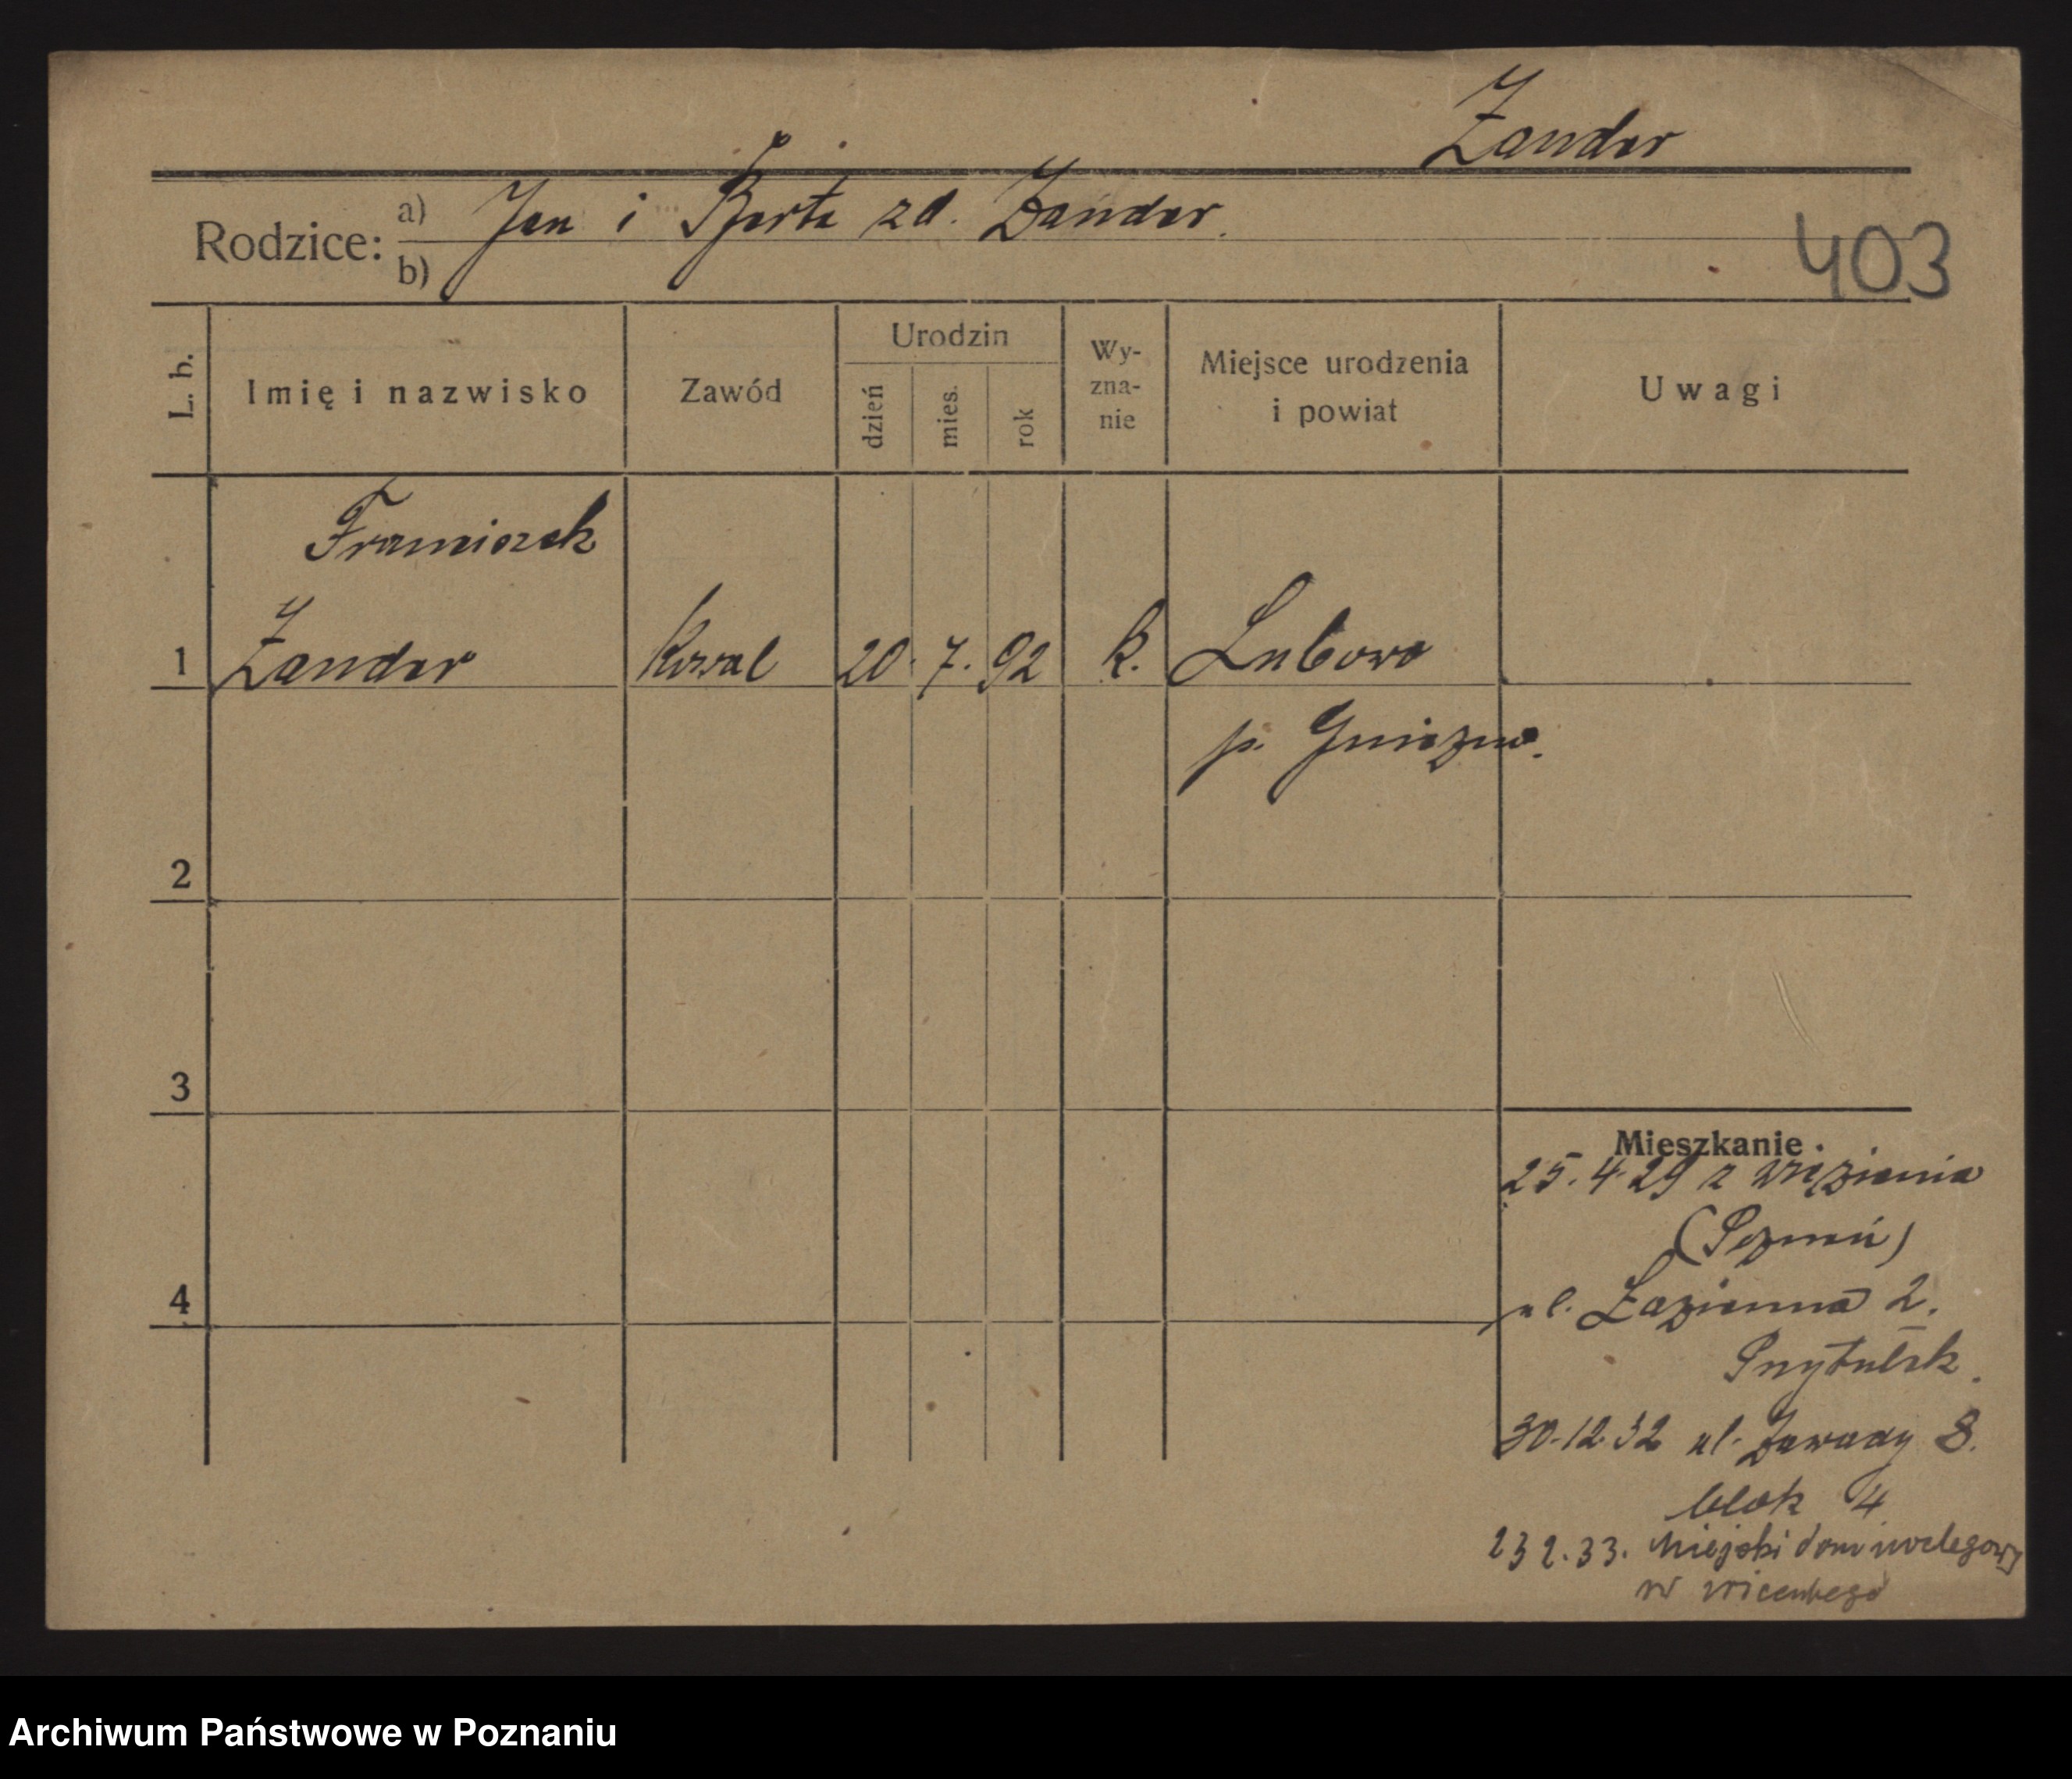 Zander
Rodzice: a) Jan i Berta zd. Zander.
b)
403
L. b.
Imię i nazwisko
Zawód
Urodzin
dzień
mies.
rok
Wy-
zna-
nie
Miejsce urodzenia
i powiat
Uwagi
Franciszek
1 Zander Kowal 20. 7. 92 k. Łubowo
p. Gniezno.
2
3
Mieszkanie.
25.4.29 z więzienia
(Poznań)
4
ul. Łazienna 2.
Przytulisk.
30.12.32 ul. Zawady 8.
blok 4
23 2.33. Miejski dom noclegowy
w
Archiwum Państwowe w Poznaniu